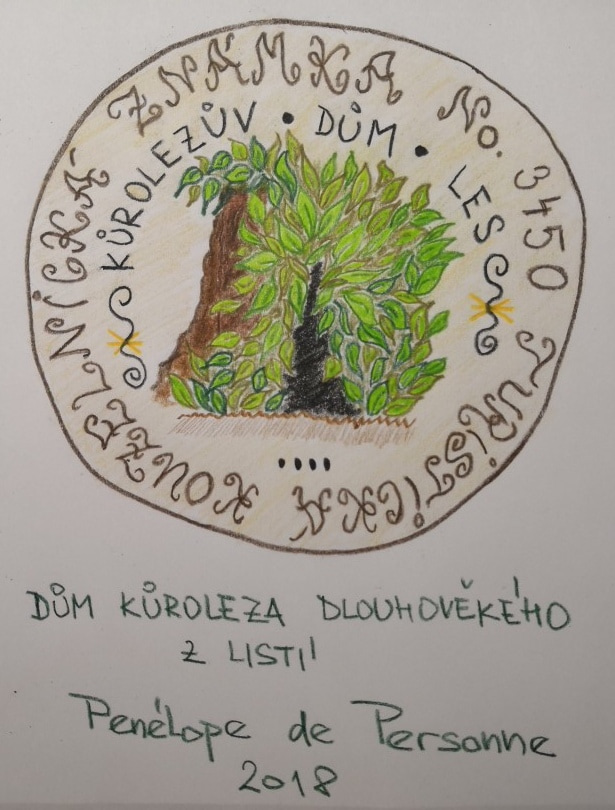 TURISTICKÁ KOUZELNICKÁ ZNÁMKA No. 3450
KŮROLEZŮV • DŮM • LES
DŮM KŮROLEZA DLOUHOVĚKÉHO
Z LISTÍ
Penélope de Personne
2018